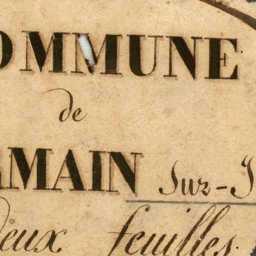 OMMUNE
de
MAIN Sur-I
Deux feuilles.